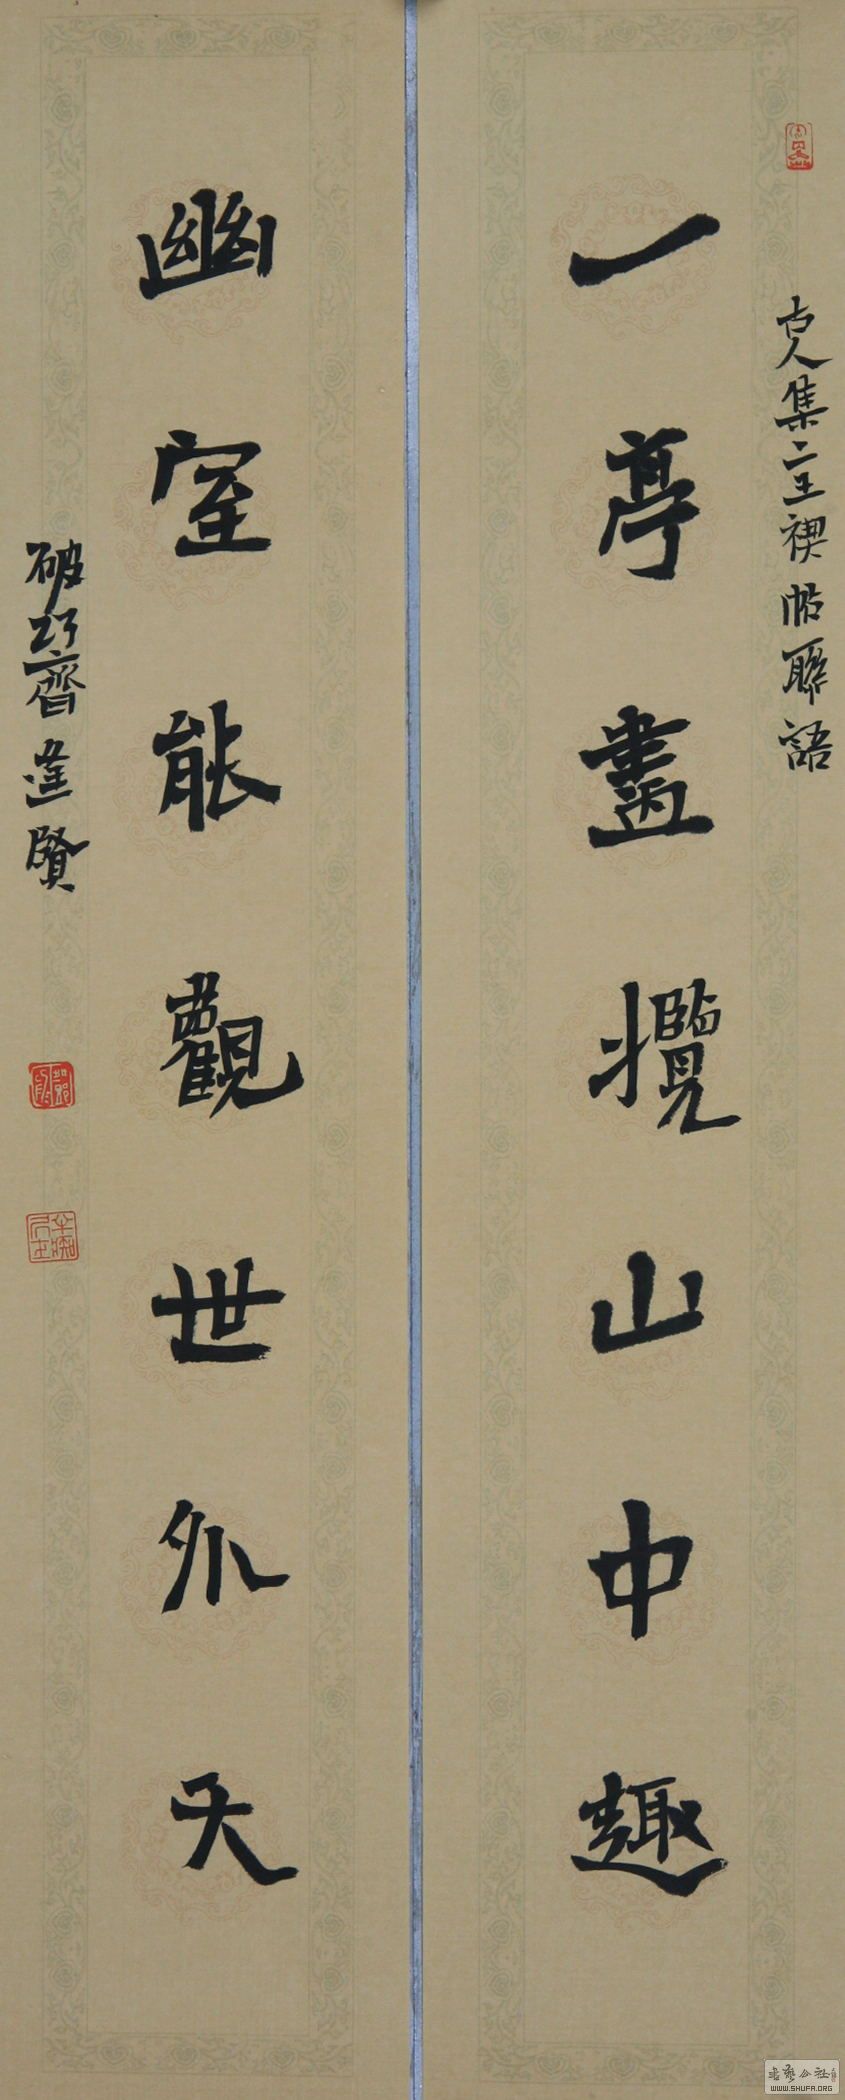 古人集二王禊帖聯語
一亭盡攬山中趣
幽室能觀世外天
破巧齋達賢
WWW.SHUFA.ORG